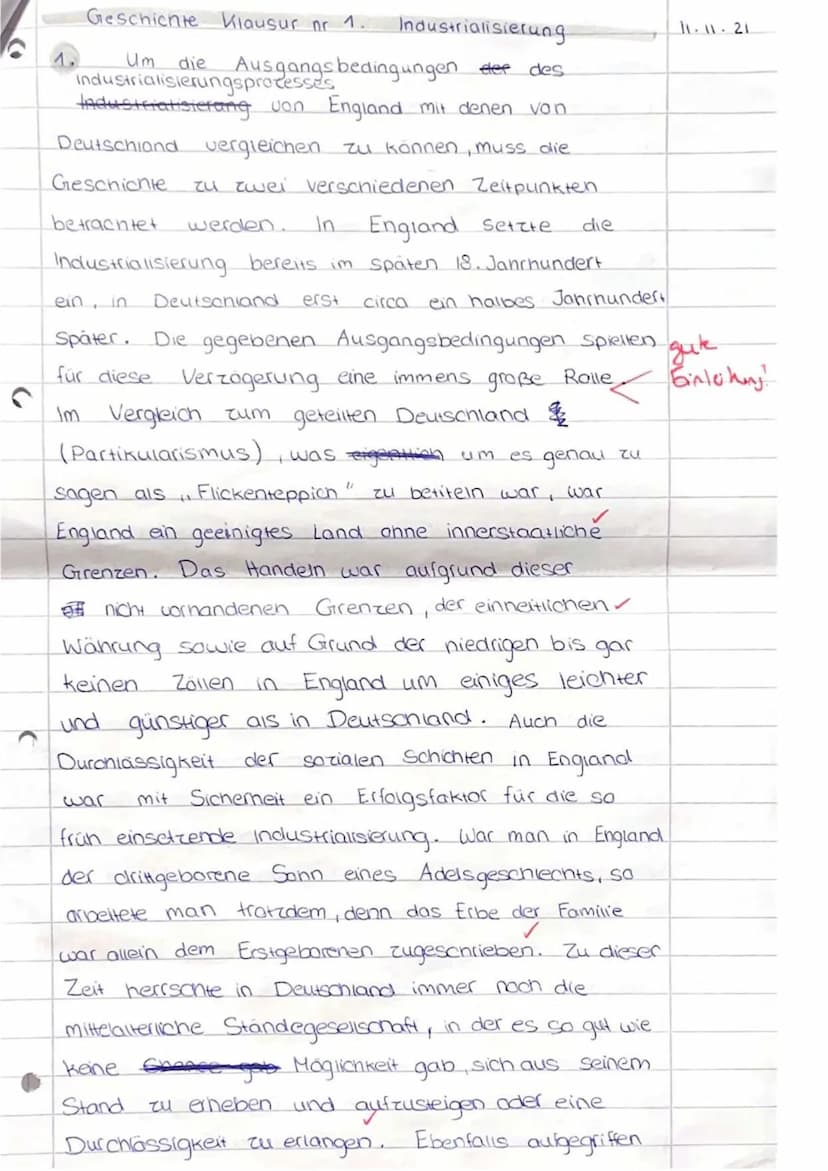 Geschichte Klausur nr 1. Industrialisierung 11.11.21
1. Um die Ausgangsbedingungen der des
industrialisierungsprozesses
Industrialisierung von England mit denen von
Deutschland vergleichen zu können, muss die
Geschichte zu zwei verschiedenen Zeitpunkten
betrachtet werden. In England setzte die
Industrialisierung bereits im späten 18. Jahrhundert
ein, in Deutschland erst circa ein halbes Jahrhundert
später. Die gegebenen Ausgangsbedingungen spielten
gute
für diese Verzögerung eine immens große Rolle.
Einleitung!
Im Vergleich zum geteilten Deutschland
(Partikularismus), was eigentlich um es genau zu
sagen als „Flickenteppich" zu betiteln war, war
England ein geeinigtes Land ohne innerstaatliche
Grenzen. Das Handeln war aufgrund dieser
nicht vorhandenen Grenzen, der einheitlichen
Währung sowie auf Grund der niedrigen bis gar
keinen Zöllen in England um einiges leichter
und günstiger als in Deutschland. Auch die
Durchlässigkeit der sozialen Schichten in England
war mit Sicherheit ein Erfolgsfaktor für die so
früh einsetzende Industrialisierung. War man in England
der drittgeborene Sohn eines Adelsgeschlechts, so
arbeitete man trotzdem, denn das Erbe der Familie
war allein dem Erstgeborenen zugeschrieben. Zu dieser
Zeit herrschte in Deutschland immer noch die
mittelalterliche Ständegesellschaft, in der es so gut wie
keine Chance gab Möglichkeit gab, sich aus seinem
Stand zu erheben und aufzusteigen oder eine
Durchlässigkeit zu erlangen. Ebenfalls aufgegriffen